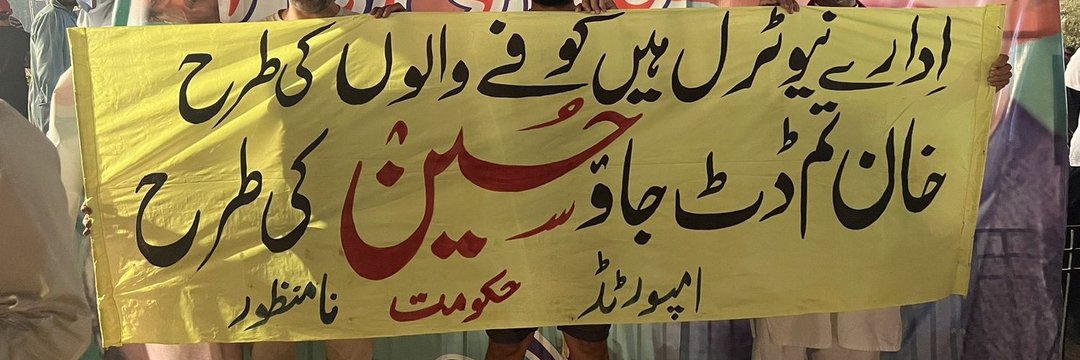 ادارے نیوٹرل ہیں کوفے والوں کی طرح
خان تم ڈٹ جاؤ حسین کی طرح
امپورٹڈ حکومت نامنظور